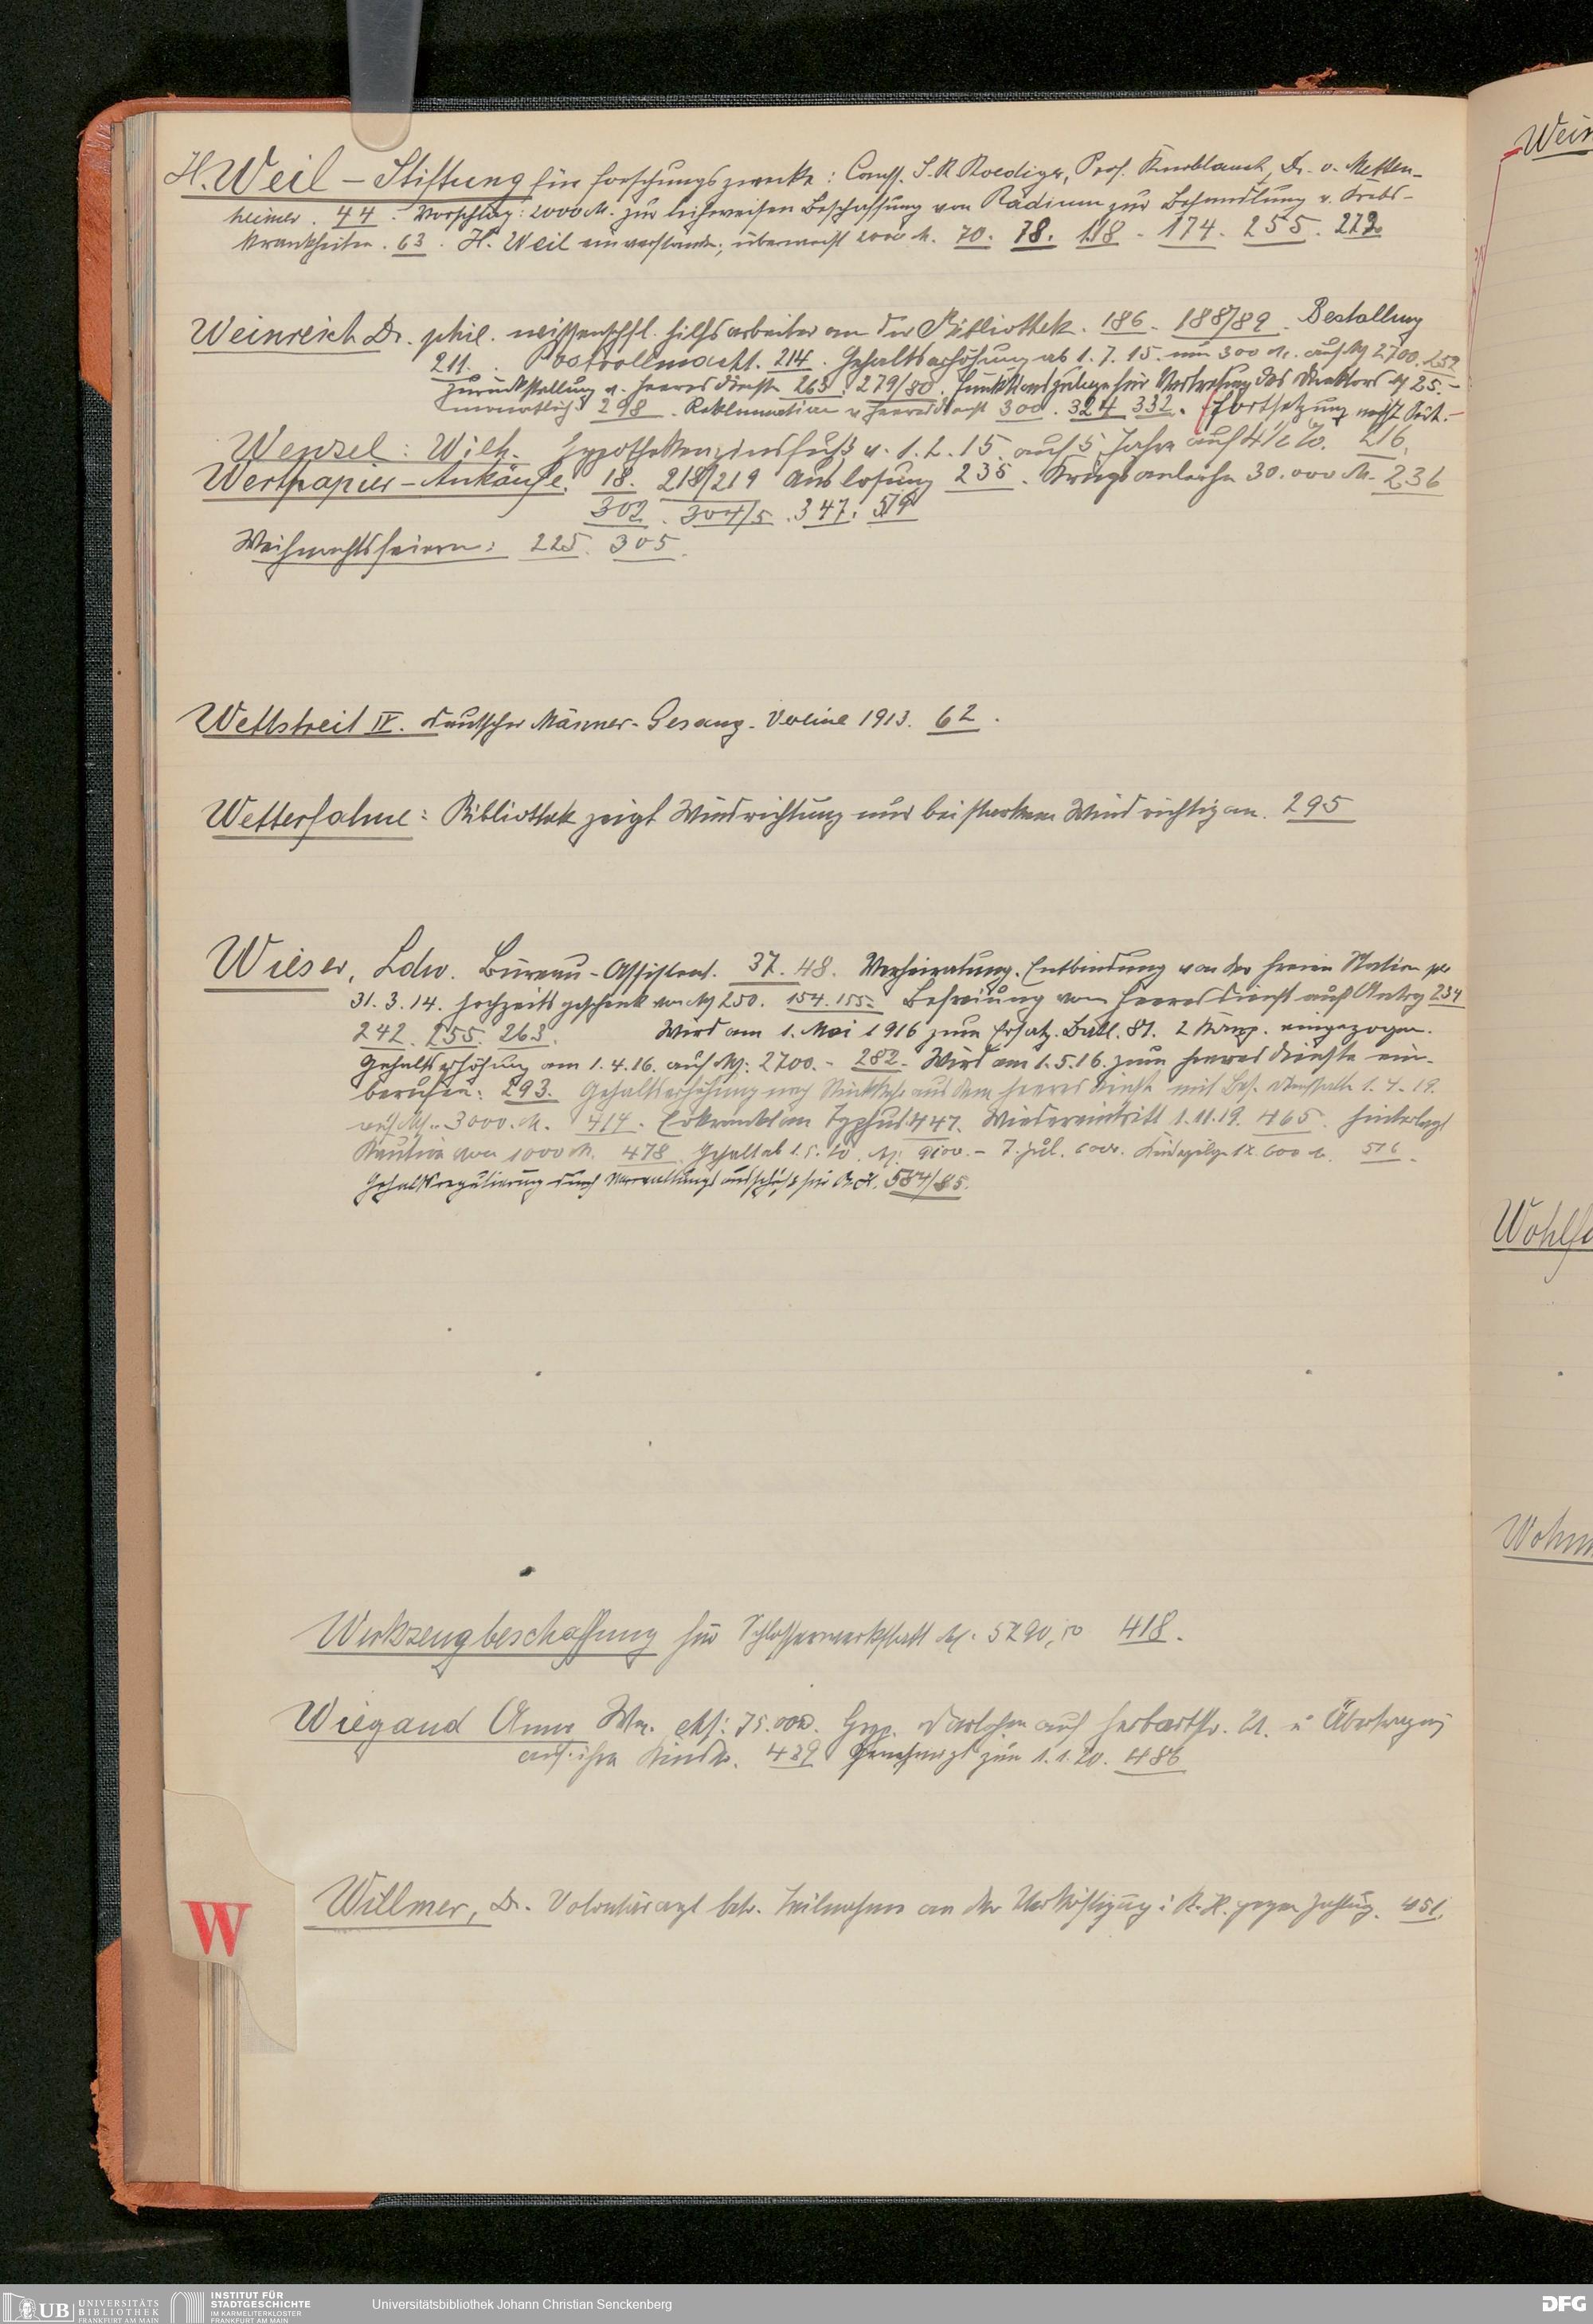 H. Weil – Stiftung für Forschungszwecke: Comss. S. R. Roediger, Prof. Knoblauch, Dr. v. Metten-
heimer. 44. Vorschlag: 2000 M. zur leihweisen Beschaffung von Radium zur Behandlung v. Krebs-
krankheiten. 63. H. Weil einverstanden, überweist 2000 M. 70. 78. 118. 174. 255. 272.
Weinreich Dr. phil. wissenschftl. Hilfsarbeiter an der Bibliothek. 186. 188/89. Bestallung
211. Postvollmacht. 214. Gehaltserhöhung ab 1.7.15. um 300 M. auf M 2700. 259
Zurückstellung v. Heeresdienste 263. 279/80. Funktionszulage für Vertretung des Direktors M 25.-
monatlich 298. Reklamation v Heeresdienst 300. 324 332. Fortsetzung nächst Seit.-
Wenzel: Wilh. Hypothekenzinsfuß v. 1.2.15. auf 5 Jahre auf 4½ %. 216.
Wertpapier-Ankäufe. 18. 218/219 Auslosung 235. Kriegsanleihe 30.000 M. 236
302. 304/5. 347. 519
Weihnachtsfeiern: 225. 305.
Wettstreit IV. deutscher Männer-Gesang-Vereine 1913. 62.
Wetterfahne: Bibliothek zeigt Windrichtung nur bei starkem Wind richtig an. 295
Wieser, Ldw. Bureau-Assistent. 37. 48. Verheiratung. Entbindung von der freien Station per
31.3.14. Hochzeitsgeschenk von M 250. 154. 155. Befreiung vom Heeresdienst auf Antrg 234
242. 255. 263. Wird am 1. Mai 1916 zum Ersatz. Batl. 81. 2 Komp. eingezogen.
Gehaltserhöhung am 1.4.16. auf M: 2700.- 282. Wird am 1.5.16. zum Heeresdienste ein-
berufen: 293. Gehaltserhöhung nach Rückkehr aus dem Heeresdienst mit 1.4.19.
auf M. 3000. M. 414. Erkrankt an Typhus 447. Wiedereintritt 1.11.19. 465. hinterlegt
Kaution von 1000 M. 478. Gehalt ab 516.
Gehaltsregulierung durch Verwaltungsausschuß 584/85.
Werkzeugbeschaffung für Schlosserwerkstatt M. 5290,50 418.
Wiegand Anna Ww. M: 75.000. Hyp. Darlehen auf Herbartstr. 21. u Übertragung
auf ihre Kinder. 439 Genehmigt zum 1.1.20. 486
Willmer, Dr. Volontärarzt betr. Teilnahme an der Verköstigung i. K. H. gegen Zahlung. 451.
W
Wein
Wohlfa
Wohn
UB UNIVERSITÄTS BIBLIOTHEK FRANKFURT AM MAIN
INSTITUT FÜR STADTGESCHICHTE IM KARMELITERKLOSTER FRANKFURT AM MAIN
Universitätsbibliothek Johann Christian Senckenberg
DFG